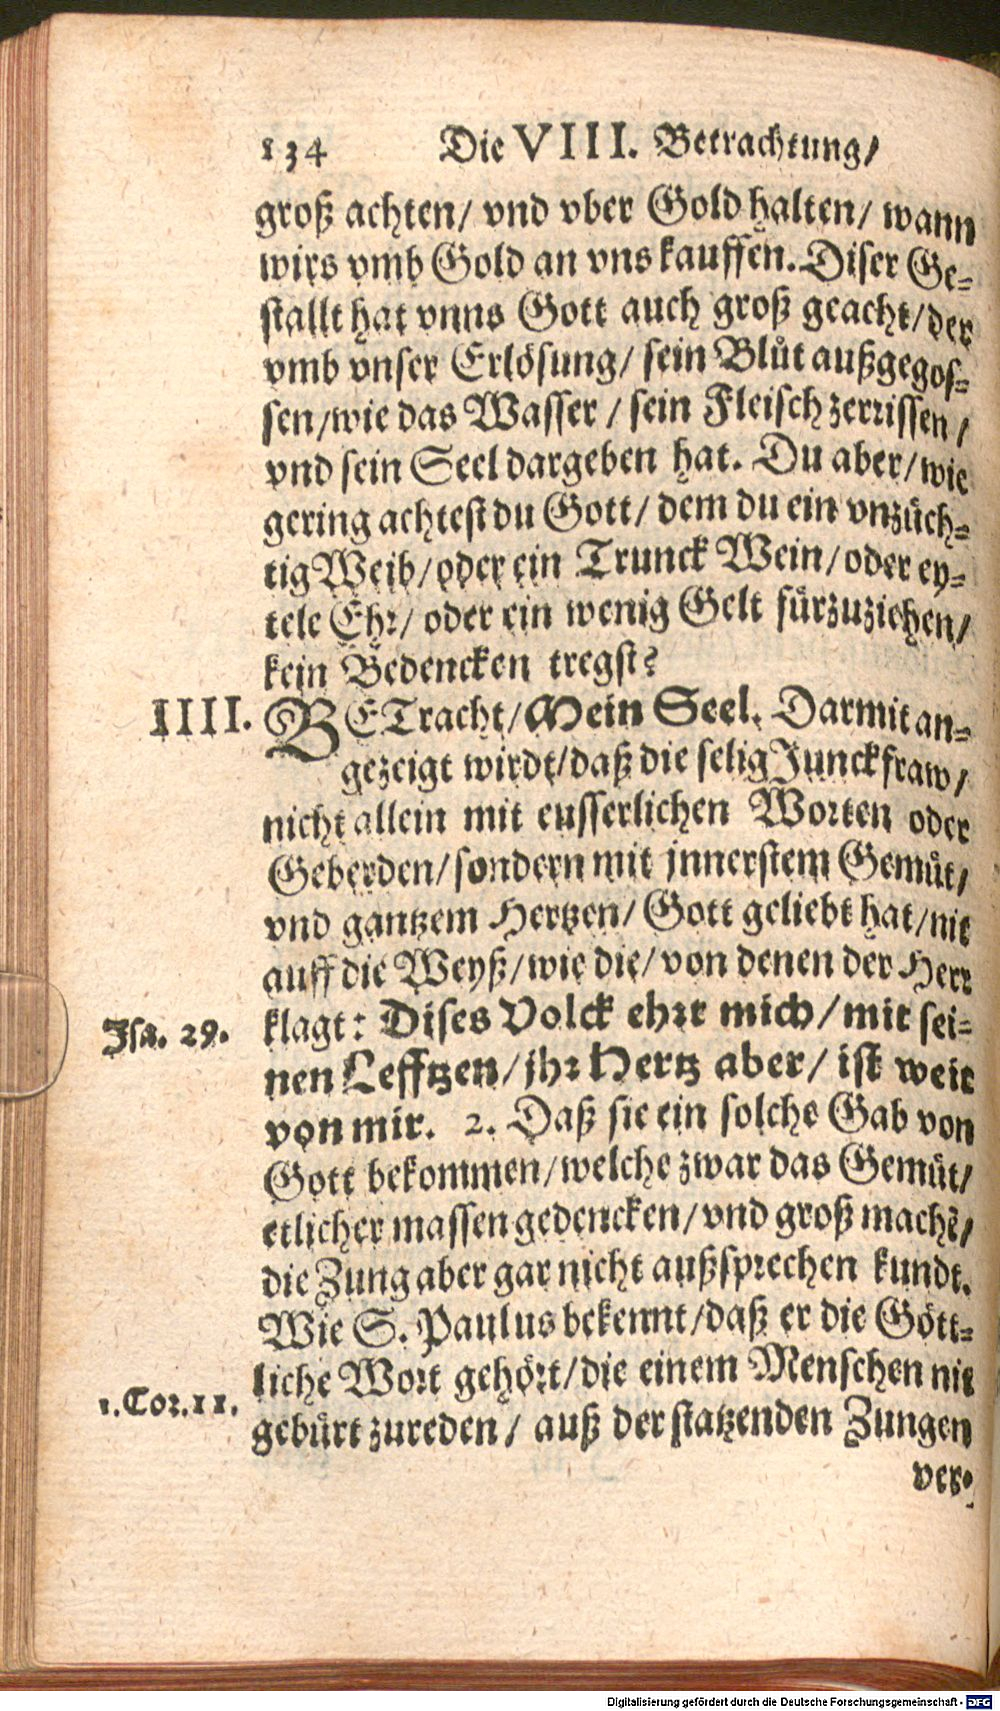 134 Die VIII. Betrachtung/
groß achten/ vnd vber Gold halten/ wann
wirs vmb Gold an vns kauffen. Diser Ge-
stallt hat vnns Gott auch groß geacht/ der
vmb vnser Erlösung/ sein Blůt außgegos-
sen/ wie das Wasser/ sein Fleisch zerrissen/
vnd sein Seel dargeben hat. Du aber/ wie
gering achtest du Gott/ dem du ein vnzüch-
tig Weib/ oder ein Trunck Wein/ oder ey-
tele Ehr/ oder ein wenig Gelt fürzuziehen/
kein Bedencken tregst?
IIII. BETracht/ Mein Seel. Darmit an-
gezeigt wirdt/ daß die selig Junckfraw/
nicht allein mit eusserlichen Worten oder
Geberden/ sondern mit jnnerstem Gemůt/
vnd gantzem Hertzen/ Gott geliebt hat/ nit
auff die Weyß/ wie die/ von denen der Herr
Isa. 29. klagt: Dises Volck ehrt mich/ mit sei-
nen Lefftzen/ jhr Hertz aber/ ist weit
von mir. 2. Daß sie ein solche Gab von
Gott bekommen/ welche zwar das Gemůt/
etlicher massen gedencken/ vnd groß machẽ/
die Zung aber gar nicht außsprechen kundt.
Wie S. Paulus bekennt/ daß er die Gött-
liche Wort gehört/ die einem Menschen nit
1. Cor. 11. gebürt zureden/ auß der statzenden Zungen
ver-
Digitalisierung gefördert durch die Deutsche Forschungsgemeinschaft - DFG